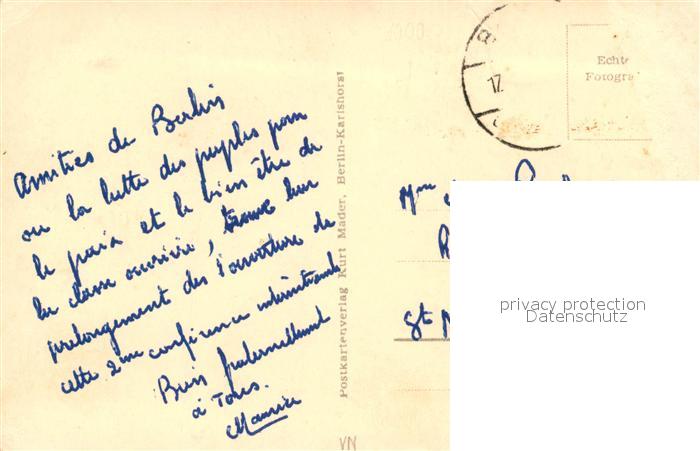 Amitiés de Berlin
ou la lutte des peuples pour
la paix et le bien être de
la classe ouvrière, trouve leur
prolongement dès l'ouverture de
cette 2ème conférence
Bien fraternellement
à Tous.
Maurice
Postkartenverlag Kurt Mader, Berlin-Karlshorst
VN
17
Echte
Fotogra
Mme
St
privacy protection
Datenschutz